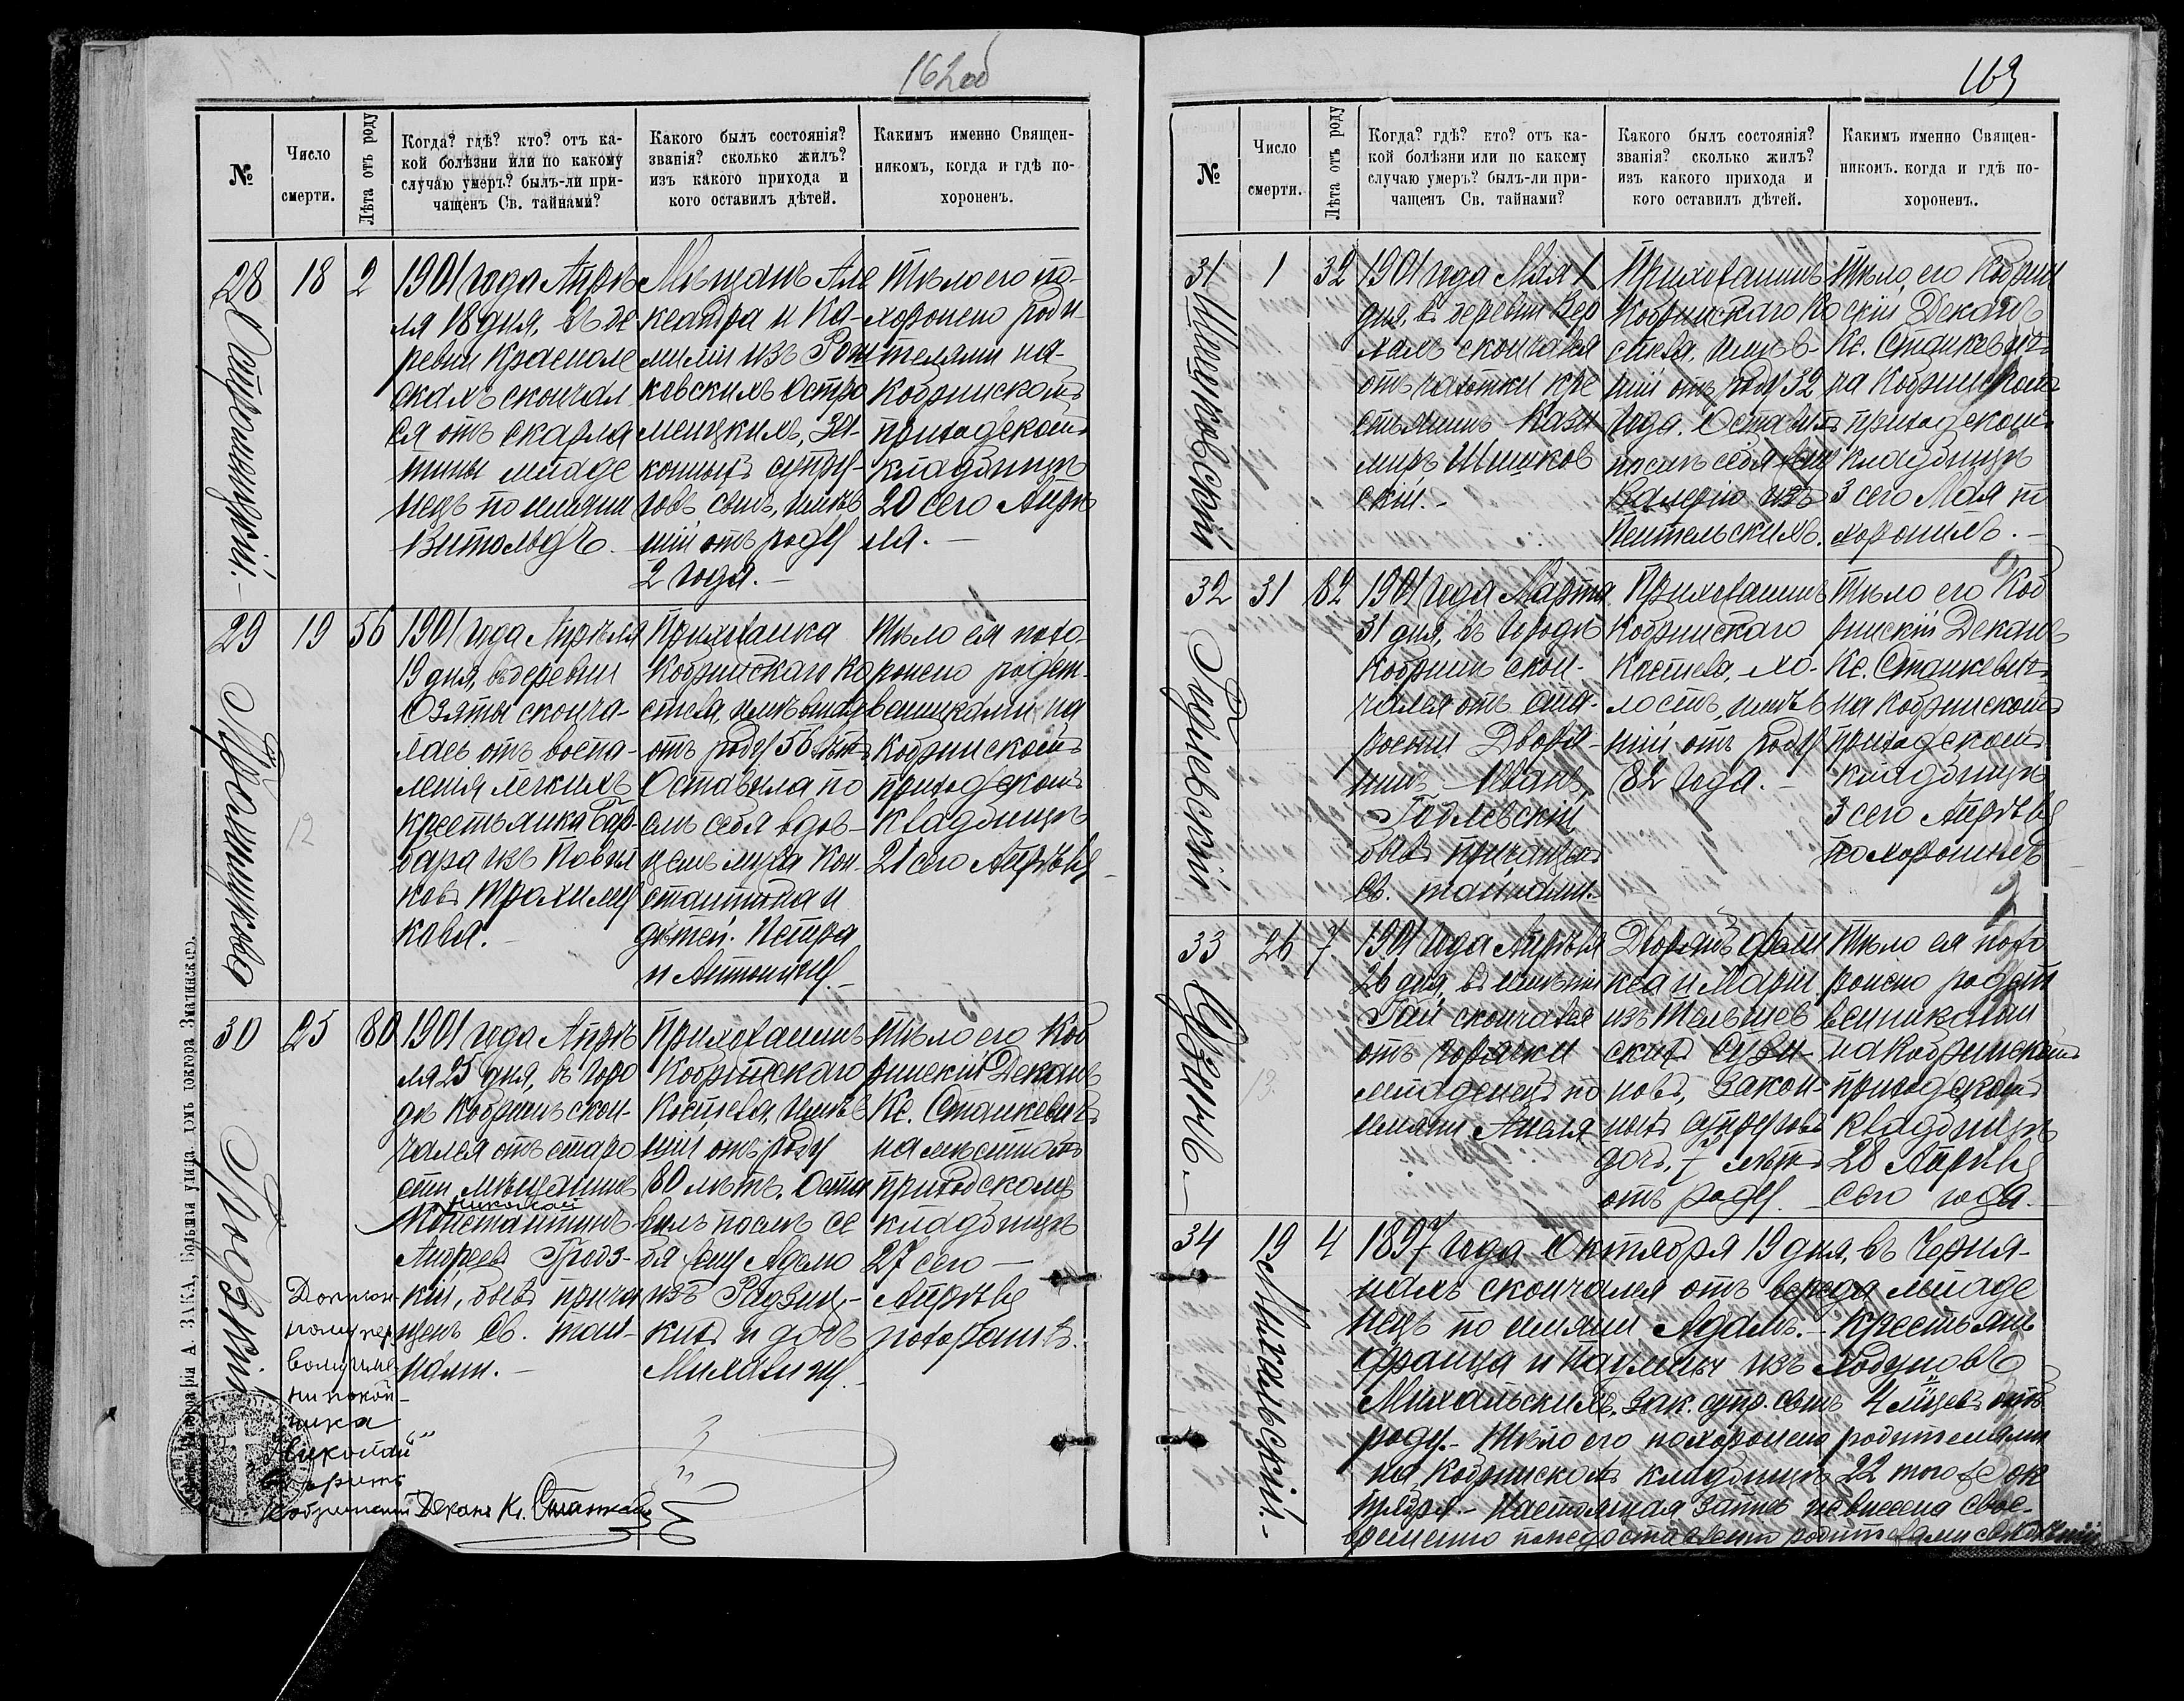 162об
№
Число
смерти.
Лѣта отъ роду
Когда? гдѣ? кто? отъ ка-
кой болѣзни или по какому
случаю умеръ? былъ-ли при-
чащенъ Св. тайнами?
Какого былъ состоянія?
званія? сколько жилъ?
изъ какого прихода и
кого оставилъ дѣтей.
Какимъ именно Священ-
никомъ, когда и гдѣ по-
хороненъ.
28
18
2
1901 года Апрѣ
ля 18 дня, въ де
ревни
скончал
ся отъ скарла
тины младе
нецъ по имени
Витольдъ.
Мѣщанъ Але
ксандра и Ка-
миліи изъ
Остро
менцкихъ, за-
конныхъ супру-
говъ сынъ, имѣв
шій отъ роду
2 года.
Тѣло его по-
хоронено роди-
телями на
Кобринскомъ
приходскомъ
кладбищѣ
20 сего Апрѣ
ля.
29
19
56
1901 года Апрѣля
19 дня, въ деревни
сконча-
лась отъ воспа-
ленія легкихъ
крестьянка Бар-
бара изъ
ковъ Трохимчу
кова.
Прихожанка
Кобринскаго Ко
стела, имѣвшая
отъ роду 56 лѣтъ
Оставила по
слѣ себя вдов-
цемъ мужа Кон-
стантина и
дѣтей: Петра
и Антонину.
Тѣло ея похо-
ронено родст-
венниками на
Кобринскомъ
приходскомъ
кладбищѣ
21 сего Апрѣля
12
30
25
80
Гродзкій
1901 года Апрѣ
ля 25 дня, въ горо
дѣ Кобринѣ скон-
чался отъ старо
сти мѣщанинъ
Николай
Константинъ
Андреевъ Гродз-
кій, бывъ прича
щенъ Св. тай-
нами.
Прихожанинъ
Кобринскаго
Костела, имѣв
шій отъ роду
80 лѣтъ. Оста
вилъ послѣ се
бя жену Аделю
изъ Радзиц-
кихъ и дочь
Михалину.
Тѣло его Коб
ринскій Деканъ
Кс. Станкевичъ
на мѣстномъ
приходскомъ
кладбищѣ
27 сего
Апрѣля
похоронилъ.
покой-
ника
„Николай“
вѣрить
Кобринскій Деканъ Кс. Станкевичъ
163
№
Число
смерти.
Лѣта отъ роду
Когда? гдѣ? кто? отъ ка-
кой болѣзни или по какому
случаю умеръ? былъ-ли при-
чащенъ Св. тайнами?
Какого былъ состоянія?
званія? сколько жилъ?
изъ какого прихода и
кого оставилъ дѣтей.
Какимъ именно Священ-
никомъ. когда и гдѣ по-
хороненъ.
31
Шишковскій
1
32
1901 года Мая 1
дня, въ деревни Вер
холѣ скончался
отъ чахотки кре
стьянинъ Кази
миръ Шишков
скій.
Прихожанинъ
Кобринскаго Ко
стела, имѣв-
шій отъ роду 32
года. Оставилъ
послѣ себя жену
Валерію изъ
Тѣло его Кобрин
скій Деканъ
Кс. Станкевичъ
на Кобринскомъ
приходскомъ
кладбищѣ
3 сего Мая по
хоронилъ.
32
Годлевскій
31
82
1901 года Марта
31 дня, въ городѣ
Кобринѣ скон-
чался отъ ста-
рости Дворя-
нинъ Иванъ
Годлевскій
бывъ причащенъ
св. тайнами.
Прихожанинъ
Кобринскаго
Костела, хо-
лостъ, имѣв
шій отъ роду
82 года.
Тѣло его Коб
ринскій Деканъ
Кс. Станкевичъ
на Кобринскомъ
приходскомъ
кладбищѣ
3 сего Апрѣля
похоронилъ
33
26
7
1901 года Апрѣля
26 дня, въ имѣніи
Гай скончался
отъ горячки
младенецъ по
имени Анеля
Дворянъ Фели
кса и Маріи
изъ
законн-
ныхъ супруговъ
дочь, 7 лѣтъ
отъ роду.
Тѣло ея похо
ронено родст
венниками
на Кобринскомъ
приходскомъ
кладбищѣ
28 Апрѣля
сего года.
13.
34
Михальскій.
19
4
1897 года Октября 19 дня, въ Черня-
нахъ скончался отъ вереда младе
нецъ по имени Адамъ. Крестьянъ
Франца и Паулины изъ
Михальскихъ, зак. супр. сынъ 4 мцевъ отъ
роду. Тѣло его похоронено родителями
на Кобринскомъ кладбищѣ 22 того же Ок
тября. Настоящая запись не внесена свое-
временно